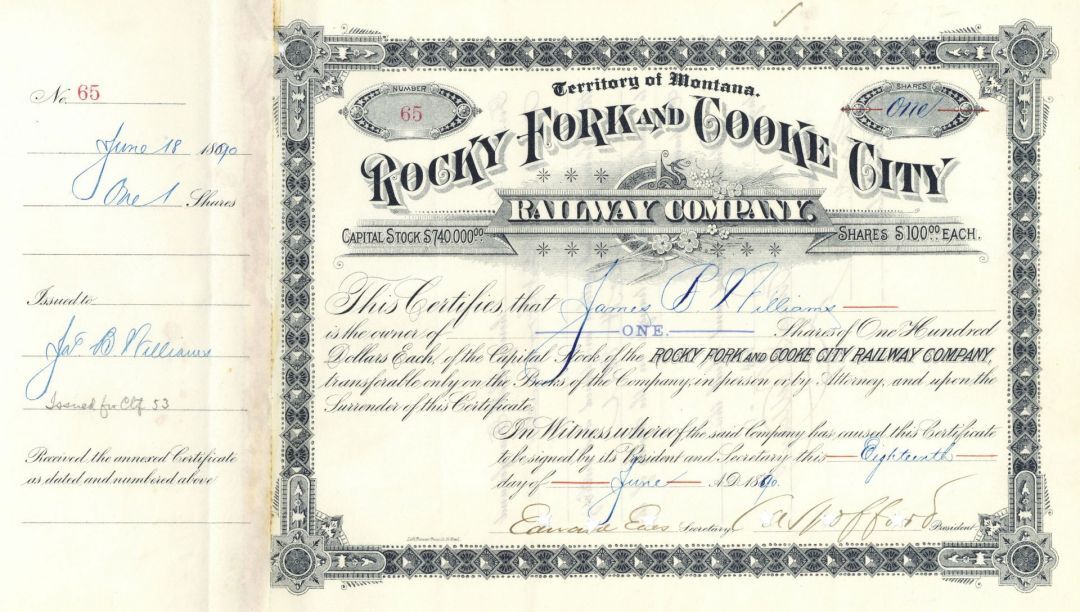 No. 65
June 18 1890
One 1 Shares
Issued to
Jas B Williams
Issued for Ctf. 53
Received the annexed Certificate
as dated and numbered above
Territory of Montana.
NUMBER
65
SHARES
One
ROCKY FORK AND COOKE CITY
RAILWAY COMPANY.
CAPITAL STOCK $740.000.00
SHARES $100.00 EACH.
This Certifies, that James B. Williams
is the owner of ONE. Shares of One Hundred
Dollars Each, of the Capital Stock of the ROCKY FORK AND COOKE CITY RAILWAY COMPANY,
transferable only on the Books of the Company, in person or by Attorney, and upon the
Surrender of this Certificate.
In Witness whereof the said Company has caused this Certificate
to be signed by its President and Secretary this Eighteenth
day of June A.D. 1890.
Edward Eves Secretary. C A Spofford President.